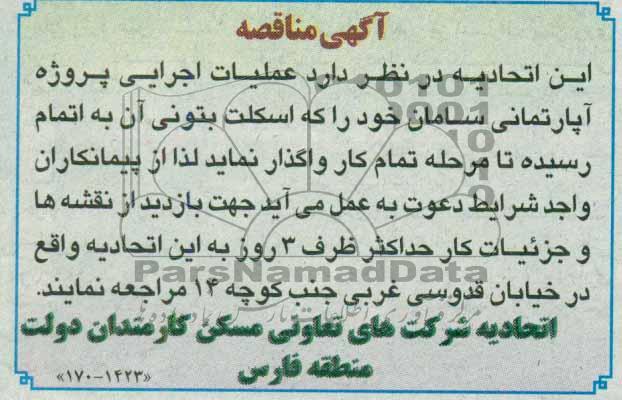 آگهی مناقصه
این اتحادیه در نظر دارد عملیات اجرایی پروژه
آپارتمانی سامان خود را که اسکلت بتونی آن به اتمام
رسیده تا مرحله تمام کار واگذار نماید لذا از پیمانکاران
واجد شرایط دعوت به عمل می آید جهت بازدید از نقشه ها
و جزئیات کار حداکثر ظرف ۳ روز به این اتحادیه واقع
ParsNamadData
در خیابان قدوسی غربی جنب کوچه ۱۴ مراجعه نمایند.
اتحادیه شرکت های تعاونی مسکن کارمندان دولت
منطقه فارس
«۱۷۰-۱۴۲۳»